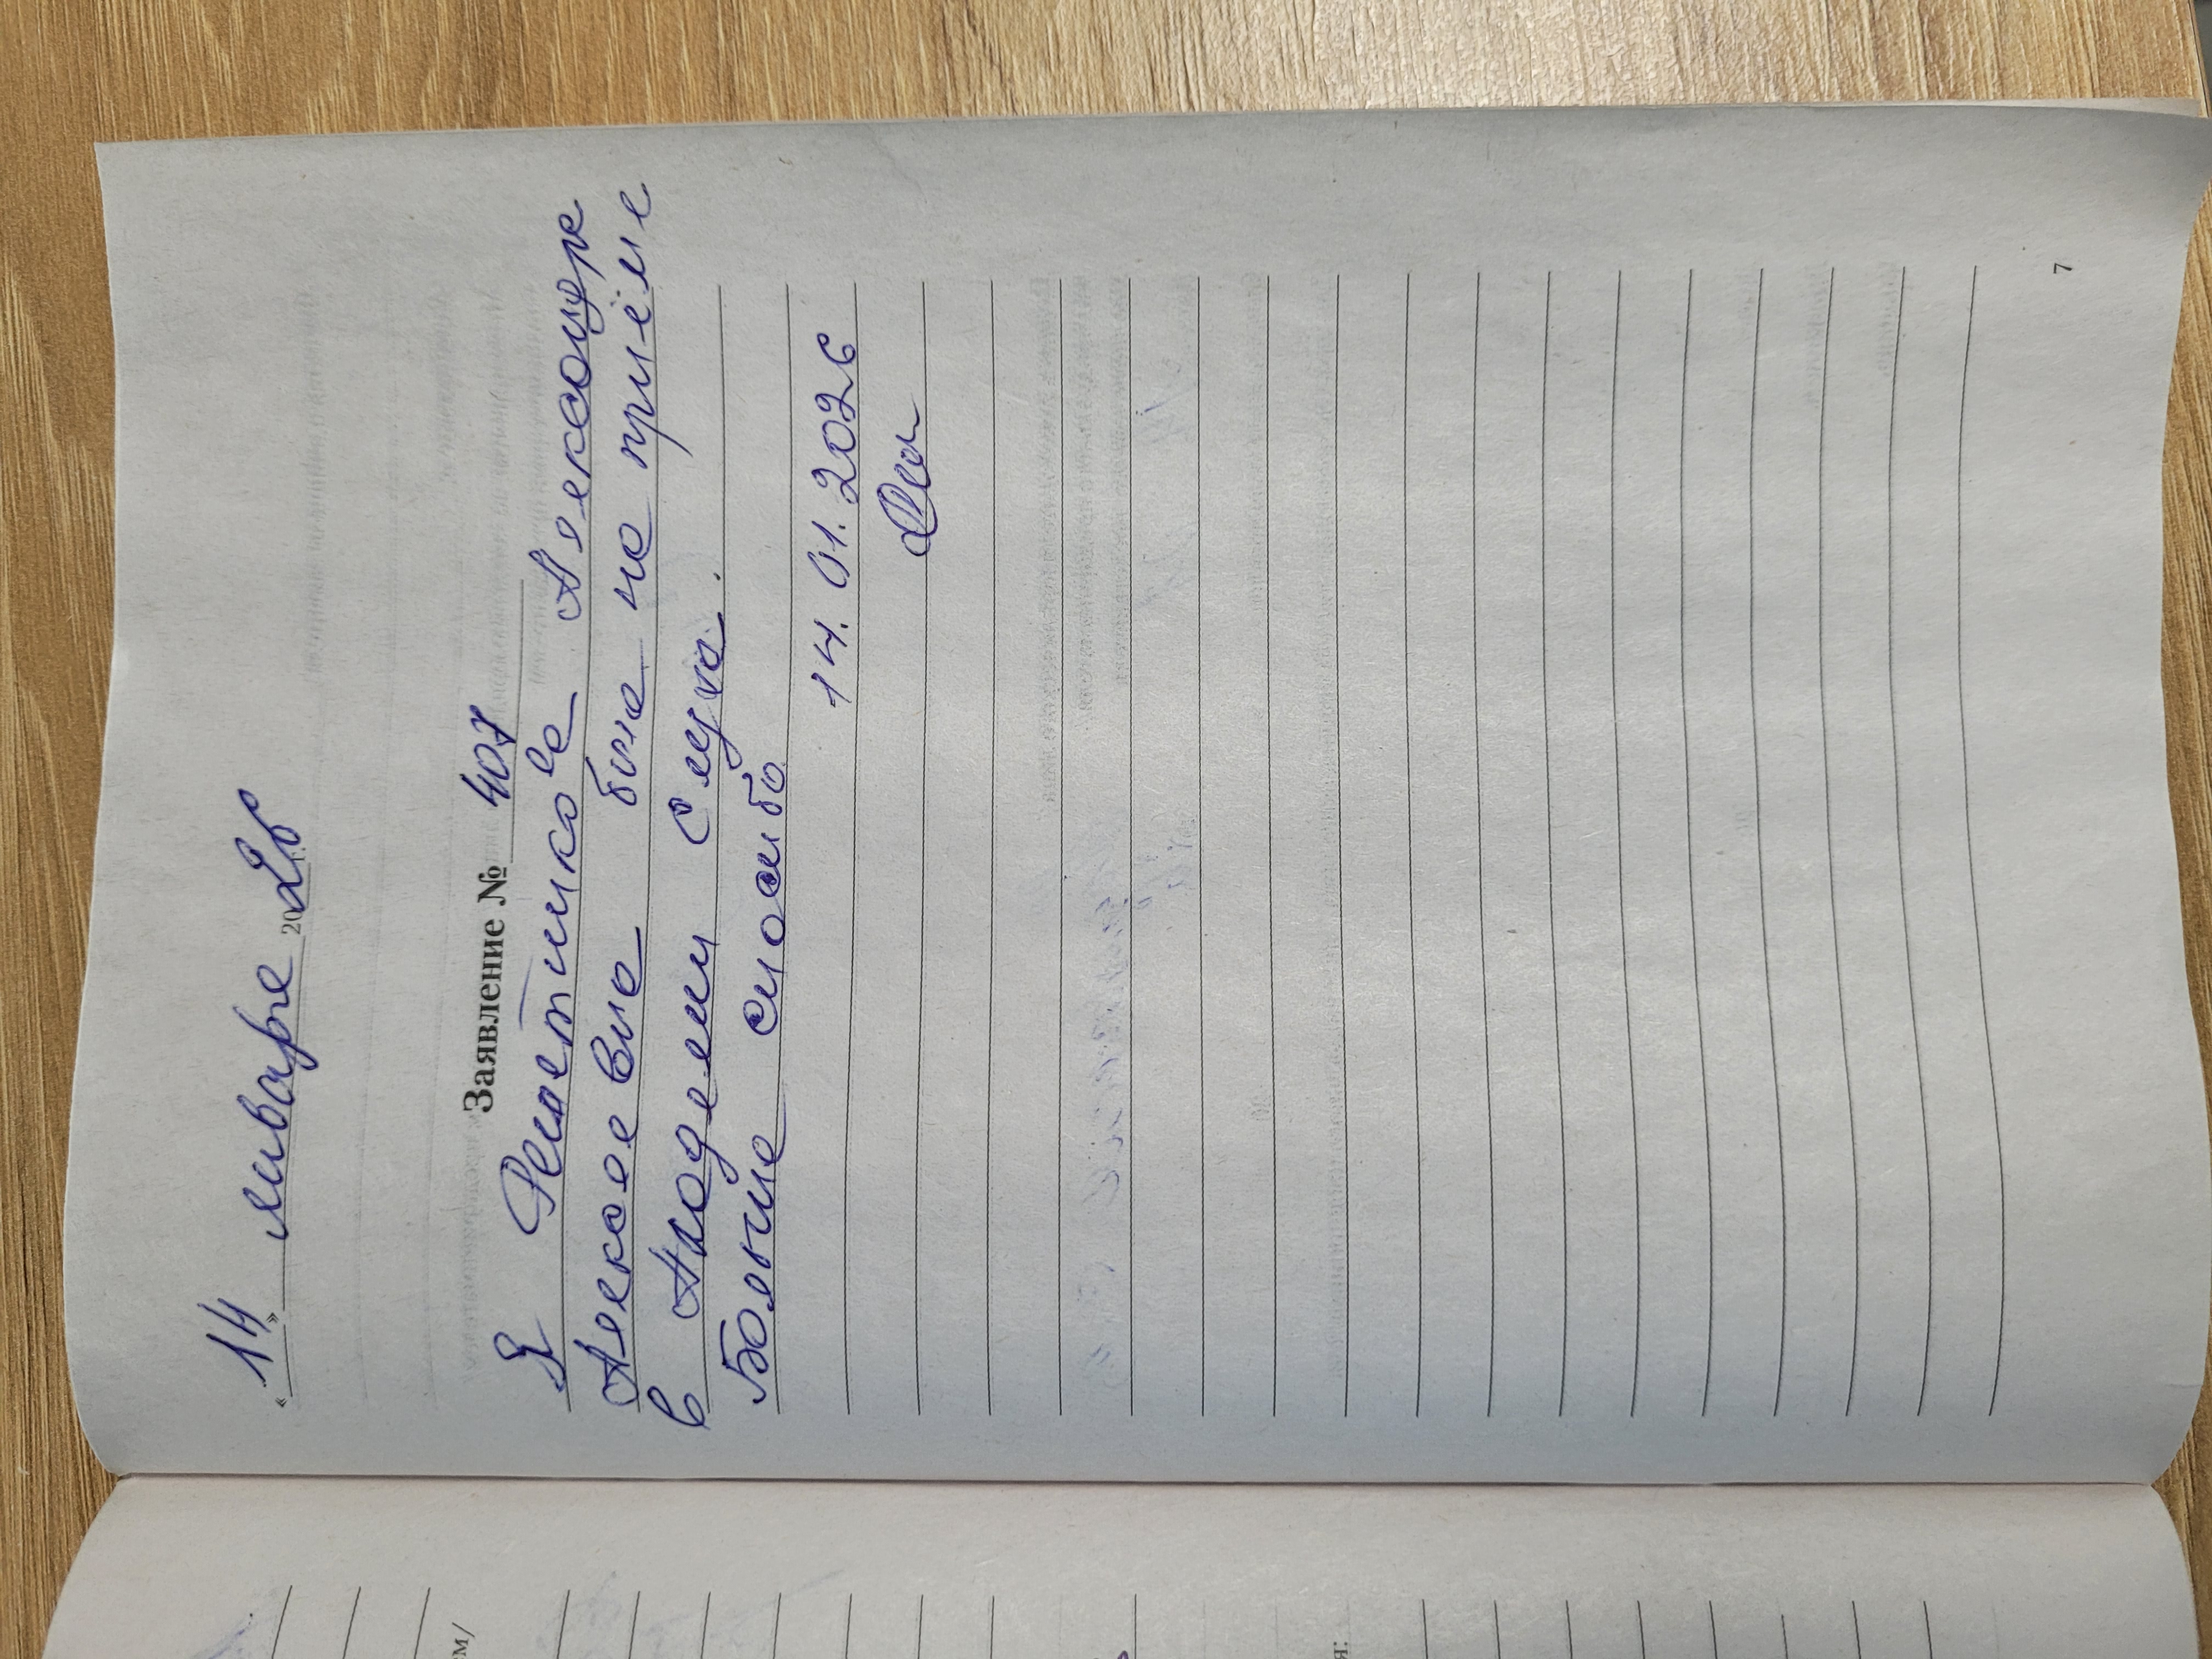 « 14 » января 2026 г.
Заявление № 407
Я Решетникова Александра
Алексеевна была на приёме
в Академии слуха.
Большое спасибо
14.01.2026
7
ем/
я: